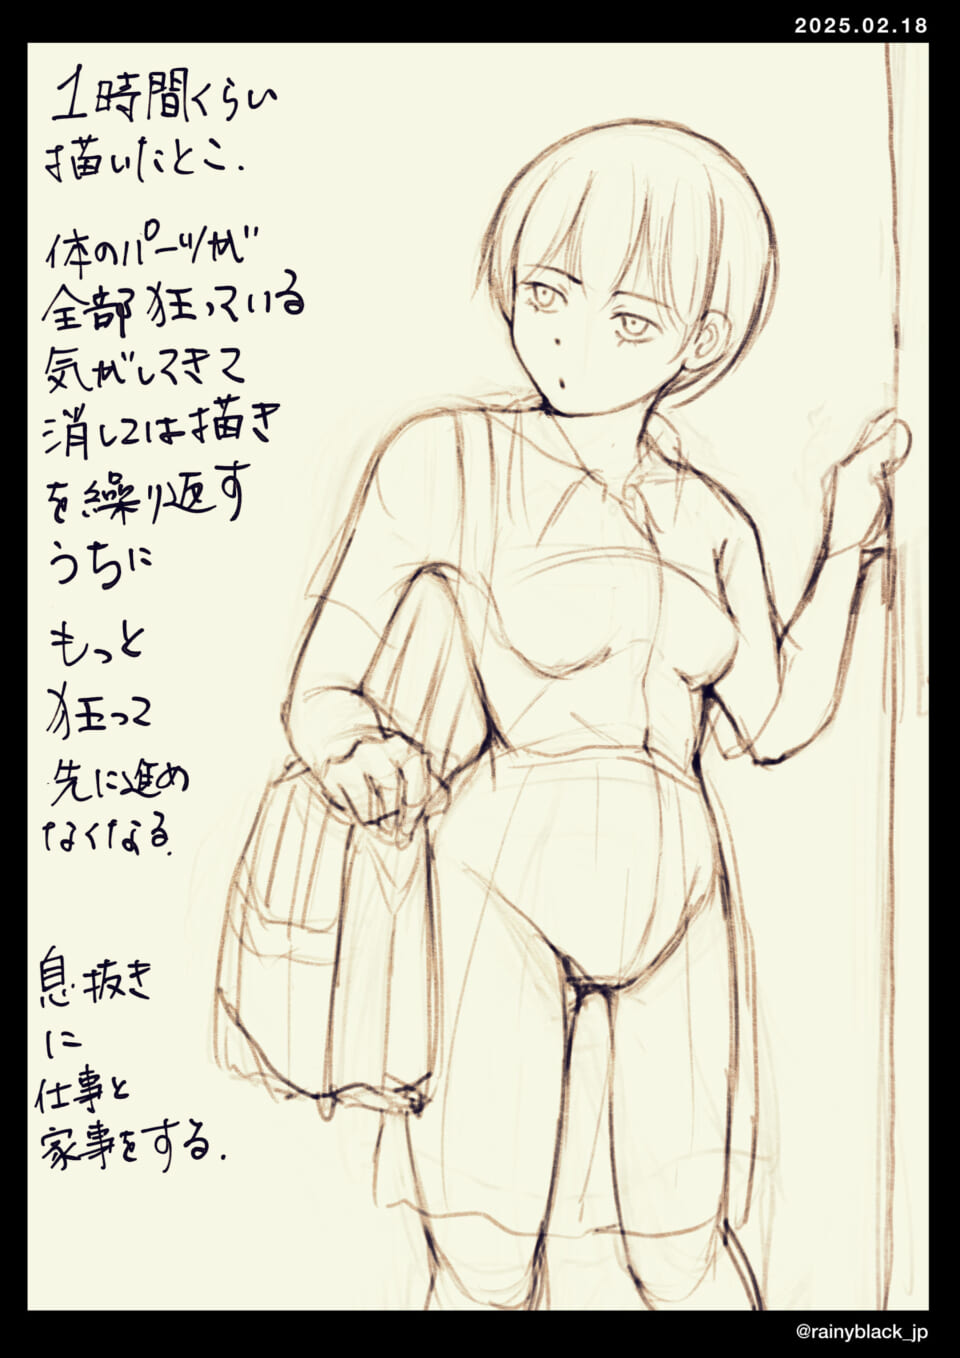 2025.02.18
1時間くらい
描いたとこ.
体のパーツが
全部狂っている
気がしてきて
消しては描き
を繰り返す
うちに
もっと
狂って
先に進め
なくなる.
息抜き
に
仕事と
家事をする.
@rainyblack_jp